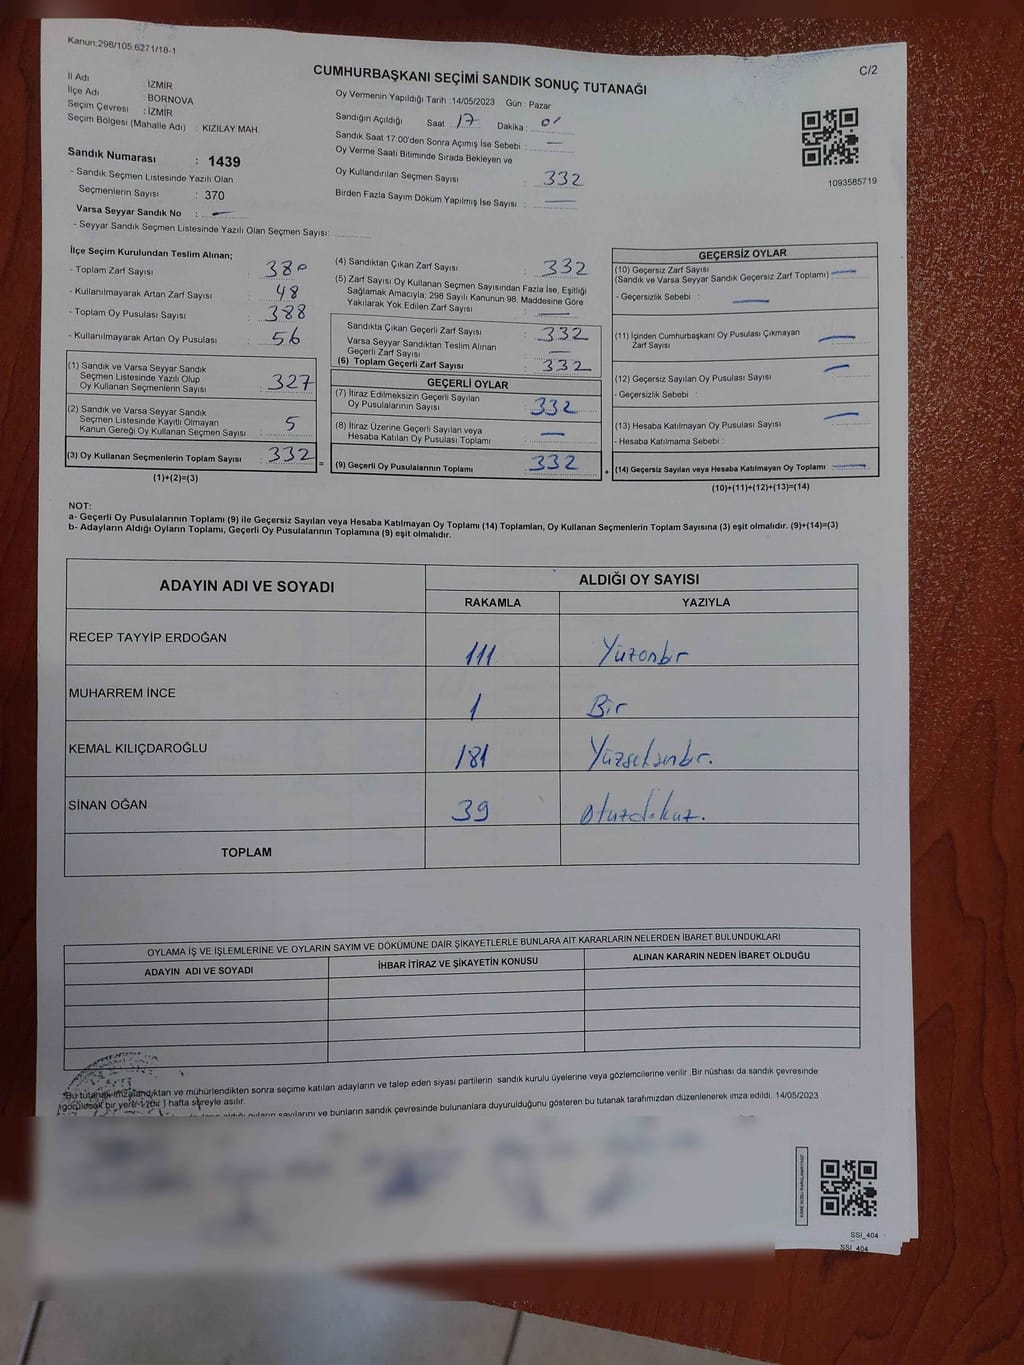 Kanun:298/105,6271/18-1
C/2
CUMHURBAŞKANI SEÇİMİ SANDIK SONUÇ TUTANAĞI
İl Adı : İZMİR
İlçe Adı : BORNOVA
Seçim Çevresi : İZMİR
Seçim Bölgesi (Mahalle Adı) : KIZILAY MAH.
Sandık Numarası : 1439
- Sandık Seçmen Listesinde Yazılı Olan
Seçmenlerin Sayısı : 370
Varsa Seyyar Sandık No : —
- Seyyar Sandık Seçmen Listesinde Yazılı Olan Seçmen Sayısı:
Oy Vermenin Yapıldığı Tarih :14/05/2023 Gün : Pazar
Sandığın Açıldığı Saat 17 Dakika :
Sandık Saat 17:00'den Sonra Açılmış İse Sebebi : —
Oy Verme Saati Bitiminde Sırada Bekleyen ve
Oy Kullandırılan Seçmen Sayısı : 332
Birden Fazla Sayım Döküm Yapılmış İse Sayısı : —
1093585719
İlçe Seçim Kurulundan Teslim Alınan;
- Toplam Zarf Sayısı : 380
- Kullanılmayarak Artan Zarf Sayısı : 48
- Toplam Oy Pusulası Sayısı : 388
- Kullanılmayarak Artan Oy Pusulası : 56
(1) Sandık ve Varsa Seyyar Sandık
Seçmen Listesinde Yazılı Olup
Oy Kullanan Seçmenlerin Sayısı : 327
(2) Sandık ve Varsa Seyyar Sandık
Seçmen Listesinde Kayıtlı Olmayan
Kanun Gereği Oy Kullanan Seçmen Sayısı : 5
(3) Oy Kullanan Seçmenlerin Toplam Sayısı : 332
(1)+(2)=(3)
=
(4) Sandıktan Çıkan Zarf Sayısı : 332
(5) Zarf Sayısı Oy Kullanan Seçmen Sayısından Fazla İse, Eşitliği
Sağlamak Amacıyla; 298 Sayılı Kanunun 98. Maddesine Göre
Yakılarak Yok Edilen Zarf Sayısı : —
Sandıkta Çıkan Geçerli Zarf Sayısı : 332
Varsa Seyyar Sandıktan Teslim Alınan
Geçerli Zarf Sayısı : —
(6) Toplam Geçerli Zarf Sayısı : 332
GEÇERLİ OYLAR
(7) İtiraz Edilmeksizin Geçerli Sayılan
Oy Pusulalarının Sayısı : 332
(8) İtiraz Üzerine Geçerli Sayılan veya
Hesaba Katılan Oy Pusulası Toplamı : —
(9) Geçerli Oy Pusulalarının Toplamı : 332
+
GEÇERSİZ OYLAR
(10) Geçersiz Zarf Sayısı
(Sandık ve Varsa Seyyar Sandık Geçersiz Zarf Toplamı) : —
- Geçersizlik Sebebi : —
(11) İçinden Cumhurbaşkanı Oy Pusulası Çıkmayan
Zarf Sayısı : —
(12) Geçersiz Sayılan Oy Pusulası Sayısı : —
- Geçersizlik Sebebi :
(13) Hesaba Katılmayan Oy Pusulası Sayısı : —
- Hesaba Katılmama Sebebi :
(14) Geçersiz Sayılan veya Hesaba Katılmayan Oy Toplamı : —
(10)+(11)+(12)+(13)=(14)
NOT:
a- Geçerli Oy Pusulalarının Toplamı (9) ile Geçersiz Sayılan veya Hesaba Katılmayan Oy Toplamı (14) Toplamları, Oy Kullanan Seçmenlerin Toplam Sayısına (3) eşit olmalıdır. (9)+(14)=(3)
b- Adayların Aldığı Oyların Toplamı, Geçerli Oy Pusulalarının Toplamına (9) eşit olmalıdır.
ADAYIN ADI VE SOYADI
ALDIĞI OY SAYISI
RAKAMLA YAZIYLA
RECEP TAYYİP ERDOĞAN 111 Yüzonbir
MUHARREM İNCE 1 Bir
KEMAL KILIÇDAROĞLU 181 Yüzseksenbir.
SİNAN OĞAN 39 otuzdokuz.
TOPLAM
OYLAMA İŞ VE İŞLEMLERİNE VE OYLARIN SAYIM VE DÖKÜMÜNE DAİR ŞİKAYETLERLE BUNLARA AİT KARARLARIN NELERDEN İBARET BULUNDUKLARI
ADAYIN ADI VE SOYADI İHBAR İTİRAZ VE ŞİKAYETİN KONUSU ALINAN KARARIN NEDEN İBARET OLDUĞU
*Bu tutanak imzalandıktan ve mühürlendikten sonra seçime katılan adayların ve talep eden siyasi partilerin sandık kurulu üyelerine veya gözlemcilerine verilir .Bir nüshası da sandık çevresinde
görülecek bir yere 1 (bir ) hafta süreyle asılır.
aldığı oyların sayılarını ve bunların sandık çevresinde bulunanlara duyurulduğunu gösteren bu tutanak tarafımızdan düzenlenerek imza edildi. 14/05/2023
KARE KODU KARALAMAYINIZ!
SSI_404
SSI_404